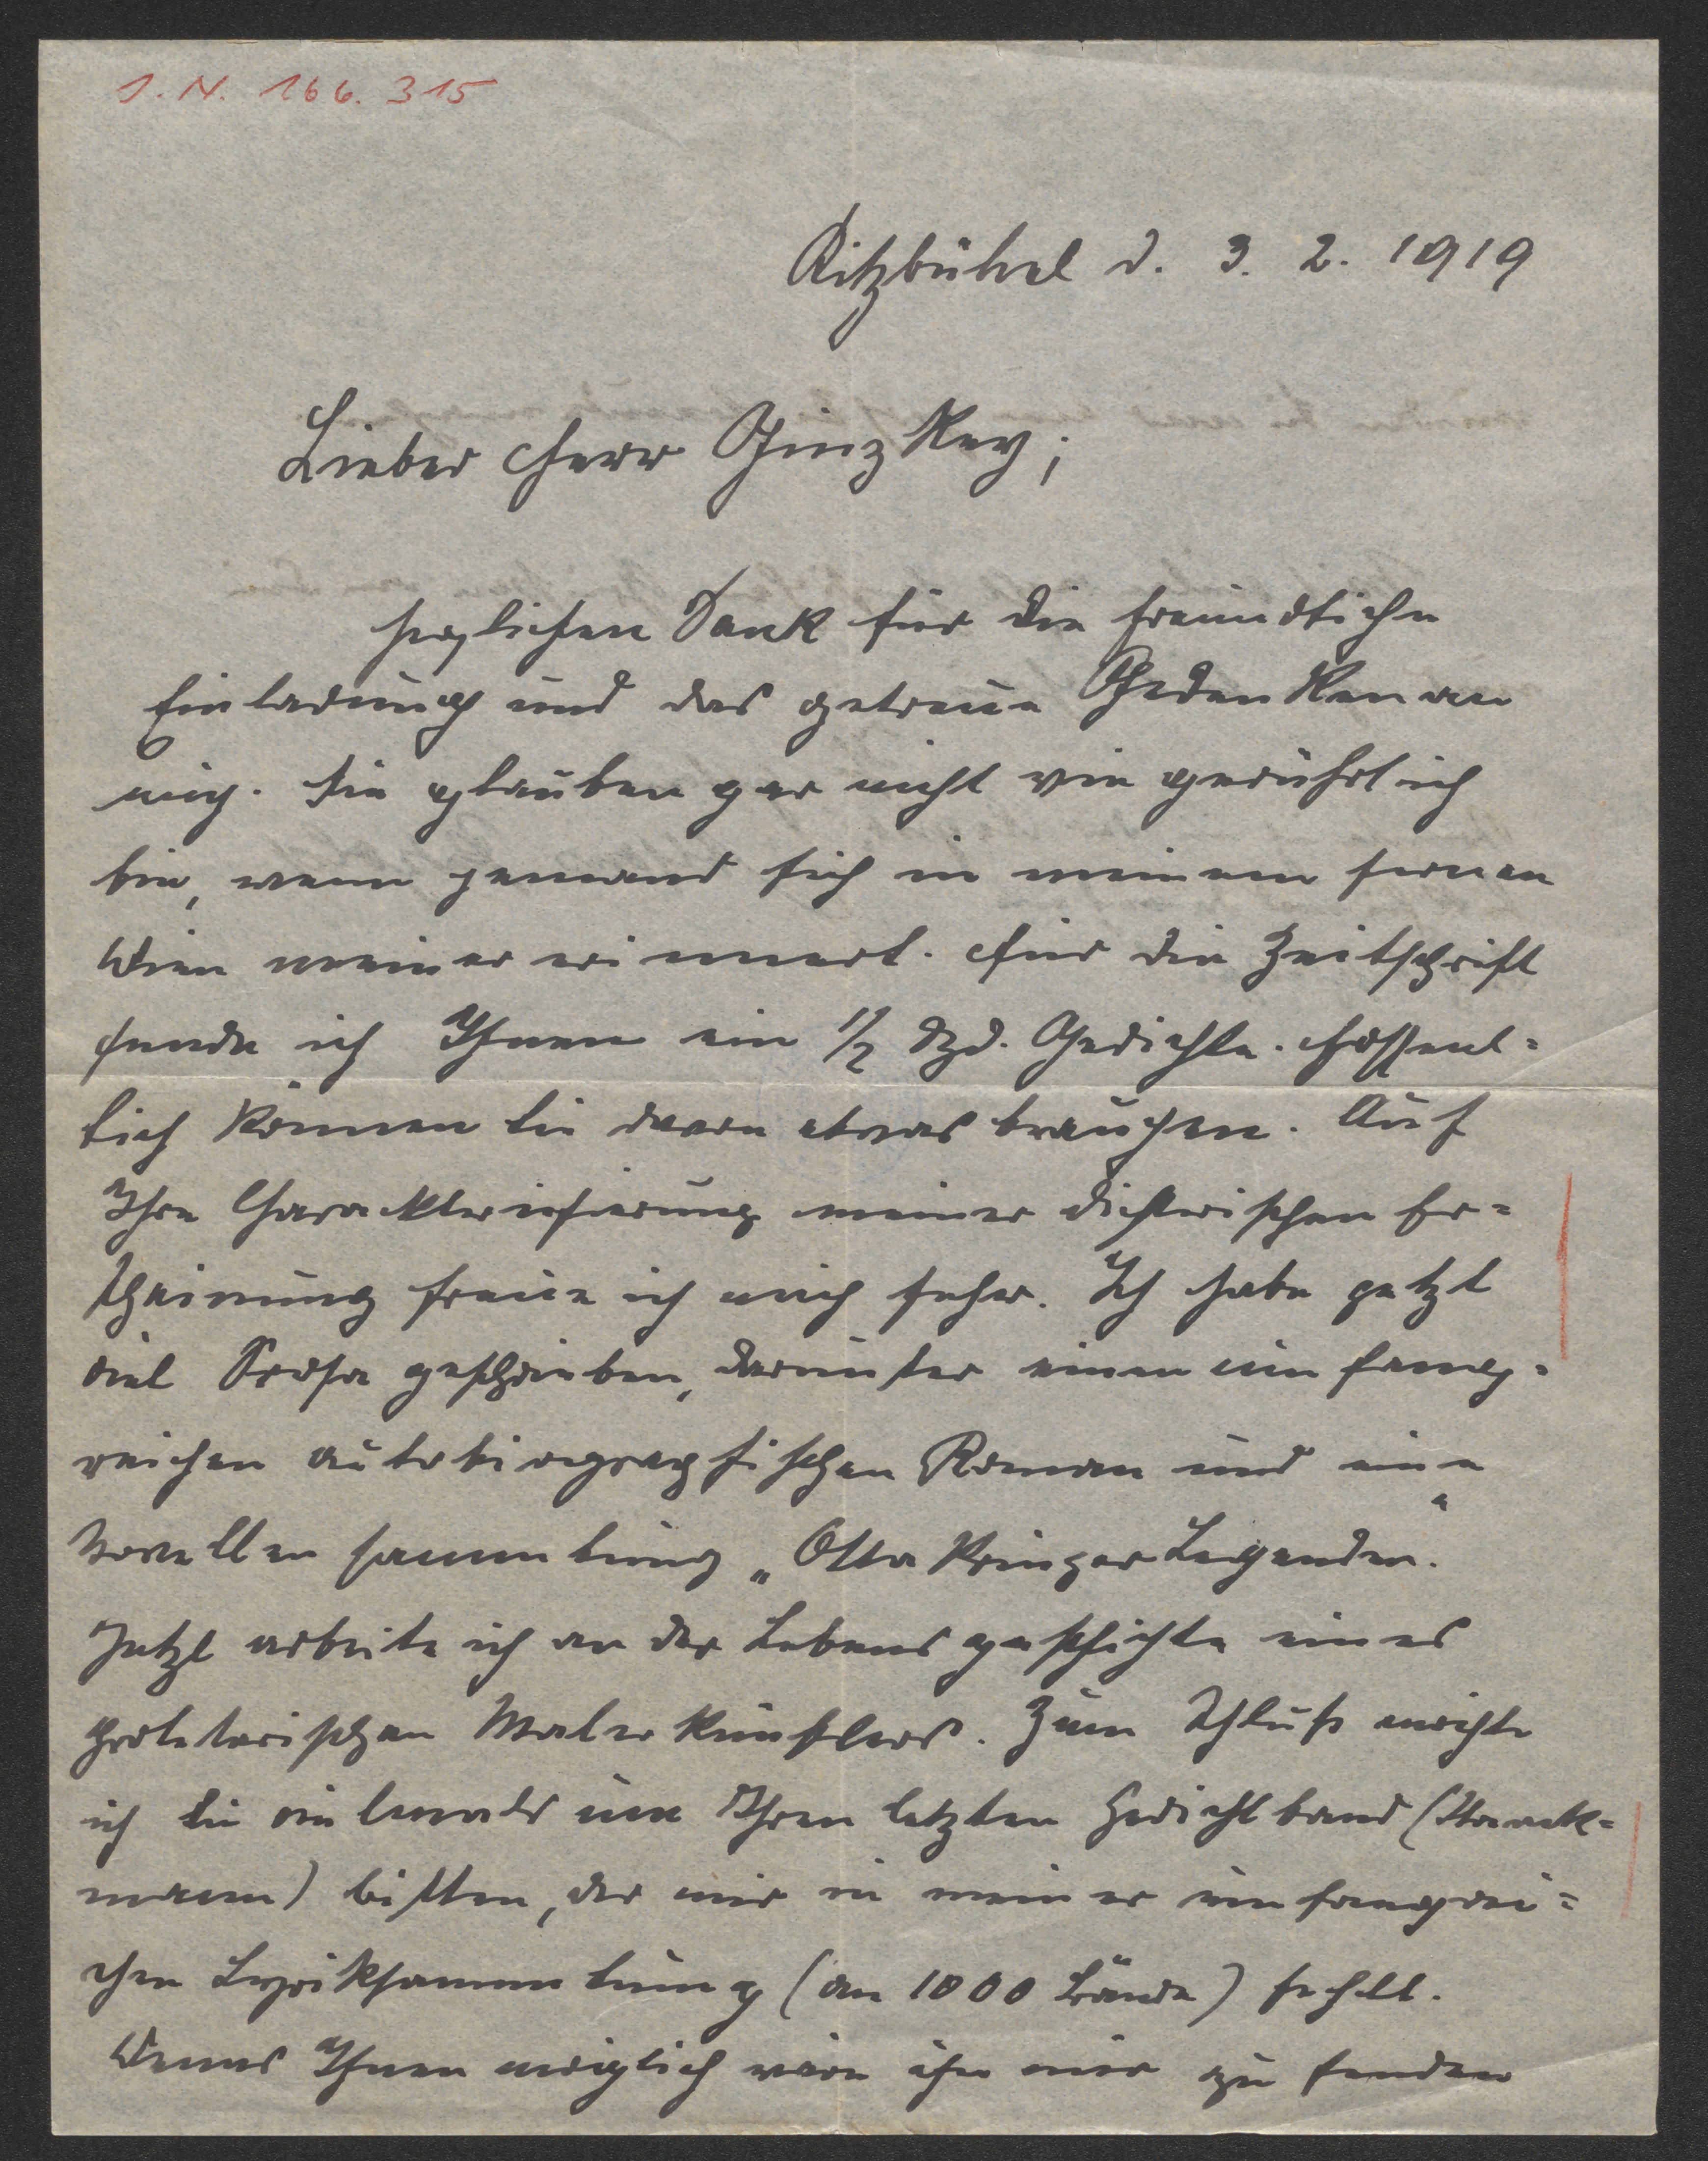 J. N. 166.315
Kitzbühel d. 3. 2. 1919
Lieber Herr Ginzkey;
herzlichen Dank für die freundliche
Einladung und das getreue Gedenken an
mich. Sie glauben gar nicht wie gerührt ich
bin, wenn jemand sich in meinem fernen
Wien meiner erinnert. Für die Zeitschrift
sende ich Ihnen ein ½ Dzd. Gedichte. Hoffent=
lich können Sie davon etwas brauchen. Auf
Ihre Charakterisierung meiner dichterischen Er=
scheinung freue ich mich sehr. Ich habe jetzt
viel Prosa geschrieben, darunter einen umfang=
reichen autobiographischen Roman und eine
Novellensammlung „Ottakringer Legenden."
Jetzt arbeite ich an der Lebensgeschichte eines
proletarischen Malerkünstlers. Zum Schluß möchte
ich Sie um Ihren letzten Gedichtband (Staack=
mann) bitten, der mir in meiner umfangrei=
chen Lyriksammlung (an 1000 Bände) fehlt.
Wenns Ihnen möglich wäre ihn mir zu senden